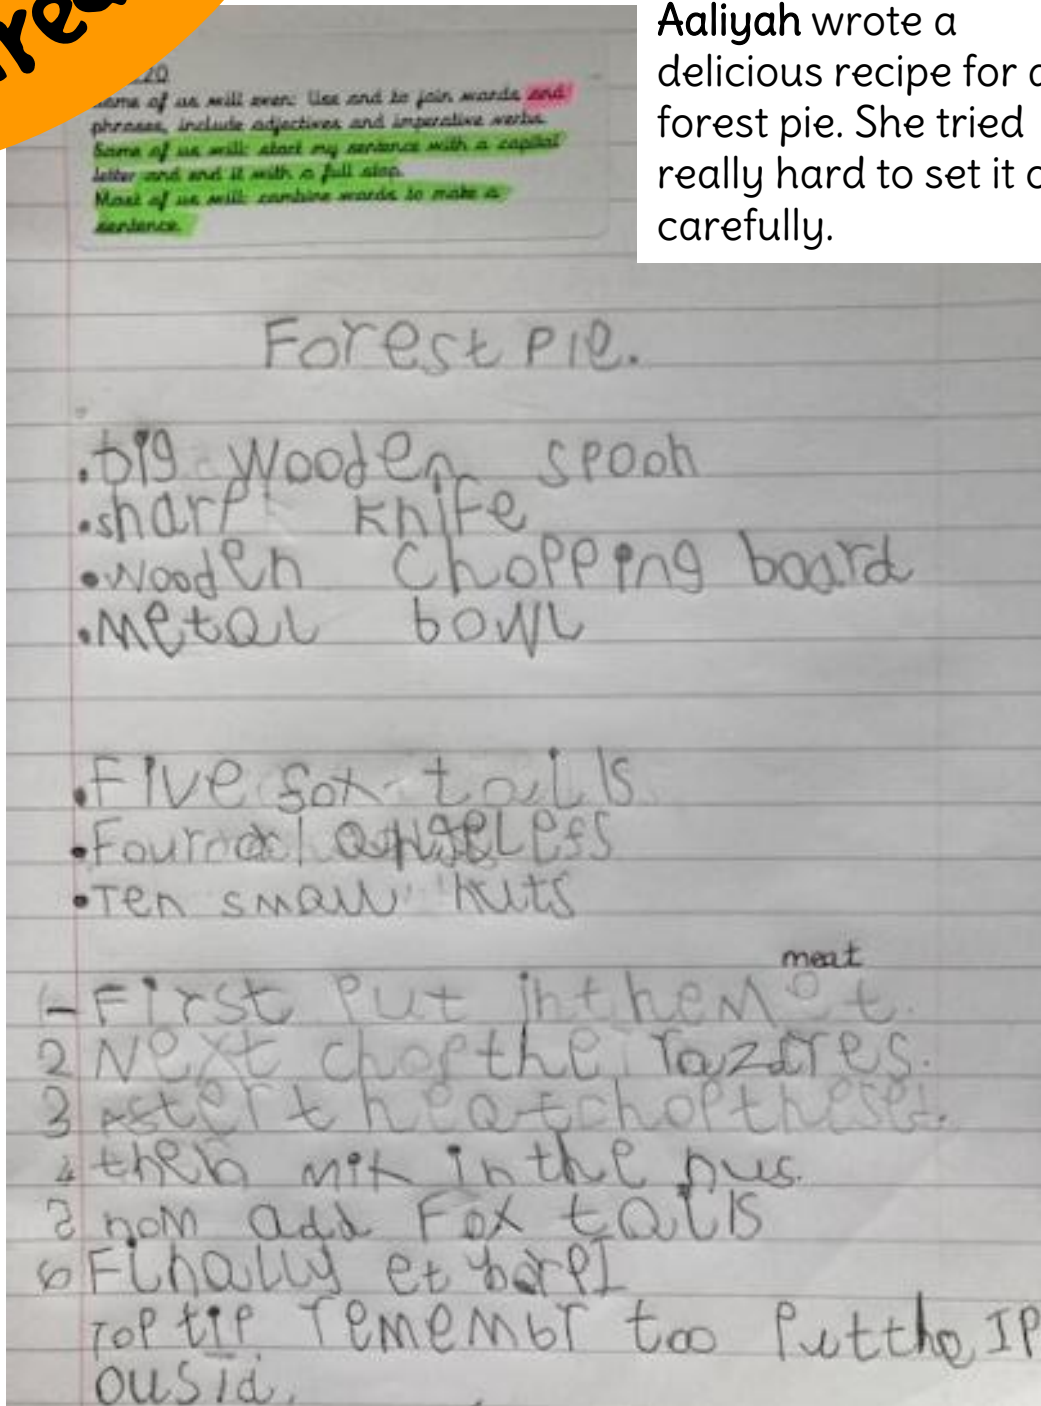 Aaliyah wrote a
delicious recipe for a
forest pie. She tried
really hard to set it o
carefully.
20
Some of us will even: Use and to join words and
phrases, include adjectives and imperative verbs.
Some of us will: start my sentence with a capital
letter and end it with a full stop.
Most of us will: combine words to make a
sentence.
Forest pie.
.big wooden spooh
.sharp knife
.wooden chopping board
.metal bowl
.Five fox tails
.Four
.Ten small nuts
meat
1 First put in the met.
2 Next chop the
3 after that chop
4 then mix in the nus.
5 now add Fox tails
6 Finally et
Top tip remembr too put the
ousid.